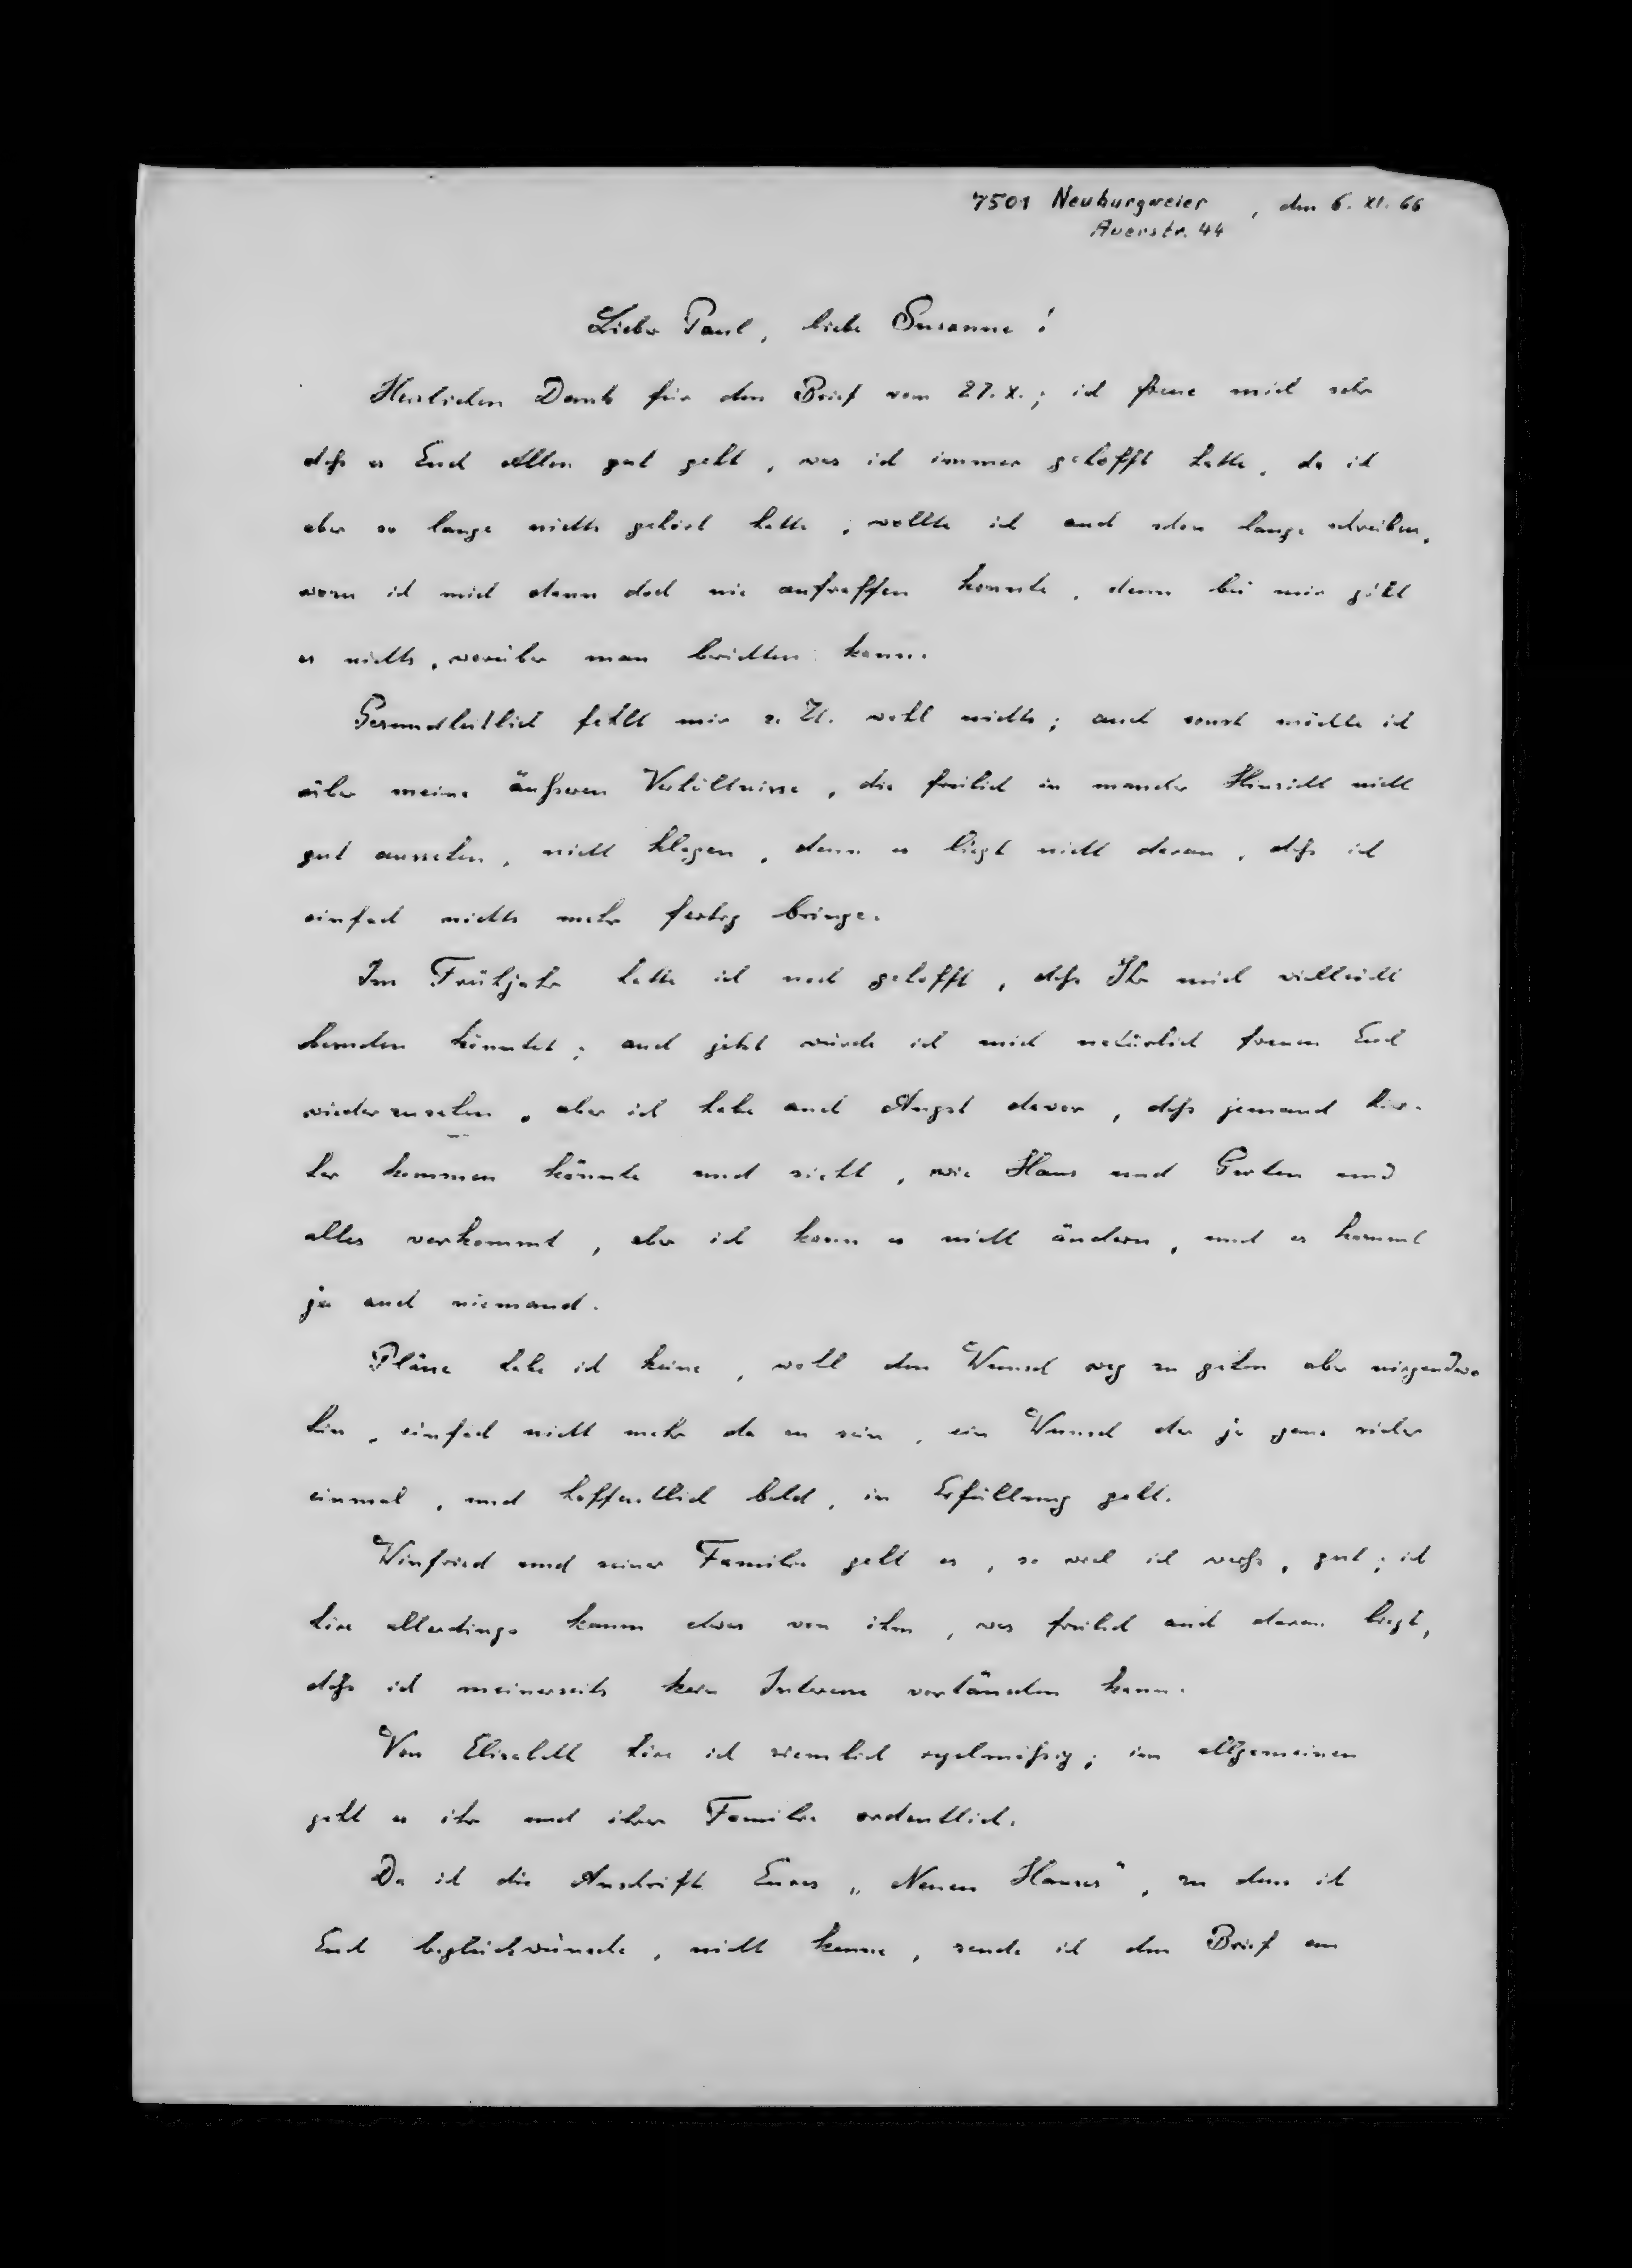 7501 Neuburgweier, den 6. XI. 66
Auerstr. 44
Lieber Paul, liebe Susanne!
Herzlichen Dank für den Brief vom 27. X.; ich freue mich sehr
daß es Euch Allen gut geht, was ich immer gehofft hatte, da ich
aber so lange nichts gehört hatte, wollte ich auch schon lange schreiben,
wozu ich mich dann doch nie aufraffen konnte, denn bei mir gibt
es nichts, worüber man berichten kann.
Gesundheitlich fehlt mir z. Zt. wohl nichts; auch sonst möchte ich
über meine äußeren Verhältnisse, die freilich in mancher Hinsicht nicht
gut aussehen, nicht klagen, denn es liegt nicht daran, daß ich
einfach nichts mehr fertig bringe.
Im Frühjahr hatte ich noch gehofft, daß Ihr mich vielleicht
besuchen könntet; auch jetzt würde ich mich natürlich freuen Euch
wiederzusehen, aber ich habe auch Angst davor, daß jemand hier-
her kommen könnte und sieht, wie Haus und Garten und
alles verkommt, aber ich kann es nicht ändern, und es kommt
ja auch niemand.
Pläne habe ich keine, wohl den Wunsch weg zu gehen aber nirgendwo
hin, einfach nicht mehr da zu sein, ein Wunsch der ja ganz sicher
einmal, und hoffentlich bald, in Erfüllung geht.
Winfried und seiner Familie geht es, so viel ich weiß, gut; ich
höre allerdings kaum etwas von ihm, was freilich auch daran liegt,
daß ich meinerseits kein Interesse vortäuschen kann.
Von Elisabeth höre ich ziemlich regelmäßig; im allgemeinen
geht es ihr und ihrer Familie ordentlich.
Da ich die Anschrift Eures „Neuen Hauses", zu dem ich
Euch beglückwünsche, nicht kenne, sende ich den Brief an